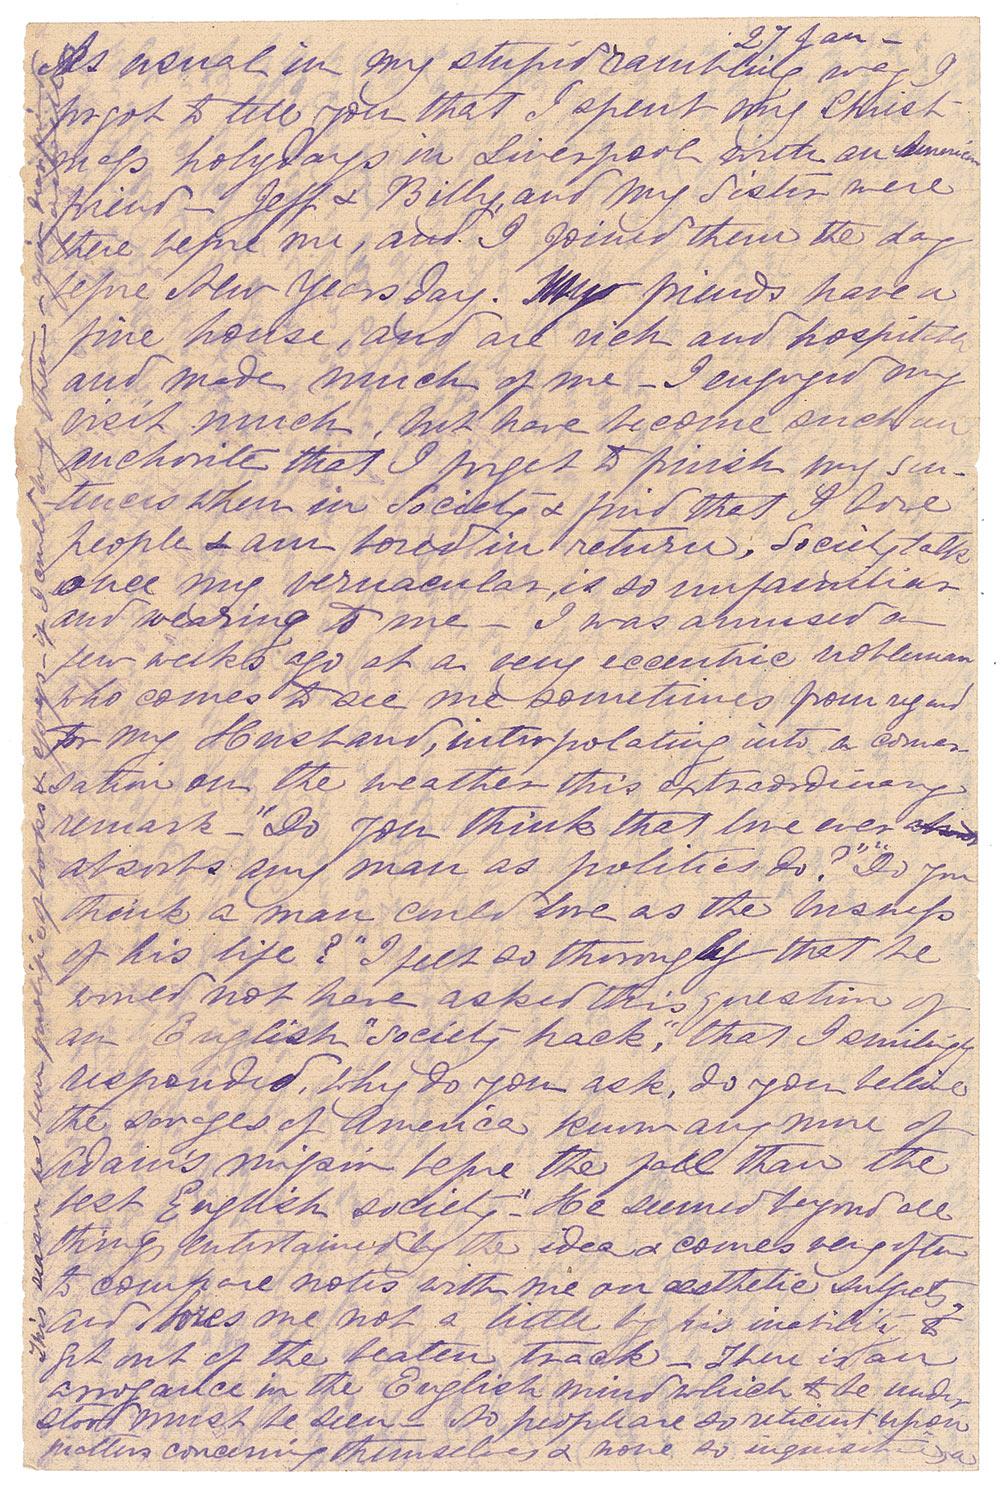 27 Jan –
As usual in my stupid rambling way I
forgot to tell you that I spent my Christ
mass holydays in Liverpool with an American
friend – Jeff & Billy, and my Sister were
there before me, and I joined them the day
before New Years Day. My friends have a
fine house, and are rich and hospitable
and made much of me – I enjoyed my
visit much, but have become such an
anchorite that I forget to finish my sen-
tences when in Society & find that I bore
people & am bored in return. Society talk
once my vernacular, is so unfamiliar
and wearing to me – I was amused a
few weeks ago at a very eccentric nobleman
who comes to see me sometimes from regard
for my Husband, interpolating into a conver
sation on the weather this extraordinary
remark – "Do you think that love ever
absorbs any man as politics do?" "Do you
think a man could love as the business
of his life?" I felt so thoroughly that he
would not have asked this question of
an English "Society hack", that I smilingly
responded, Why do you ask, do you believe
the savages of America know any more of
Adam's mission before the fall than the
best English society" – He seemed beyond all
things entertained by the idea & comes very often
to compare notes with me on aesthetic subjects,
and bores me not a little by his inability to
get out of the beaten track – There is an
arrogance in the English mind which to be under
stood must be seen – No people are so reticent upon
matters concerning themselves & none so inquisitive
This season has been prolific of books & – if I come any them –